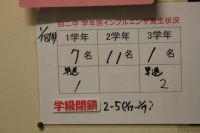 西二中 学年別インフルエンザ発生状況
1/18(水)
1学年 2学年 3学年
7名 11名 1名
早退 早退
1 2
学級閉鎖 2-5